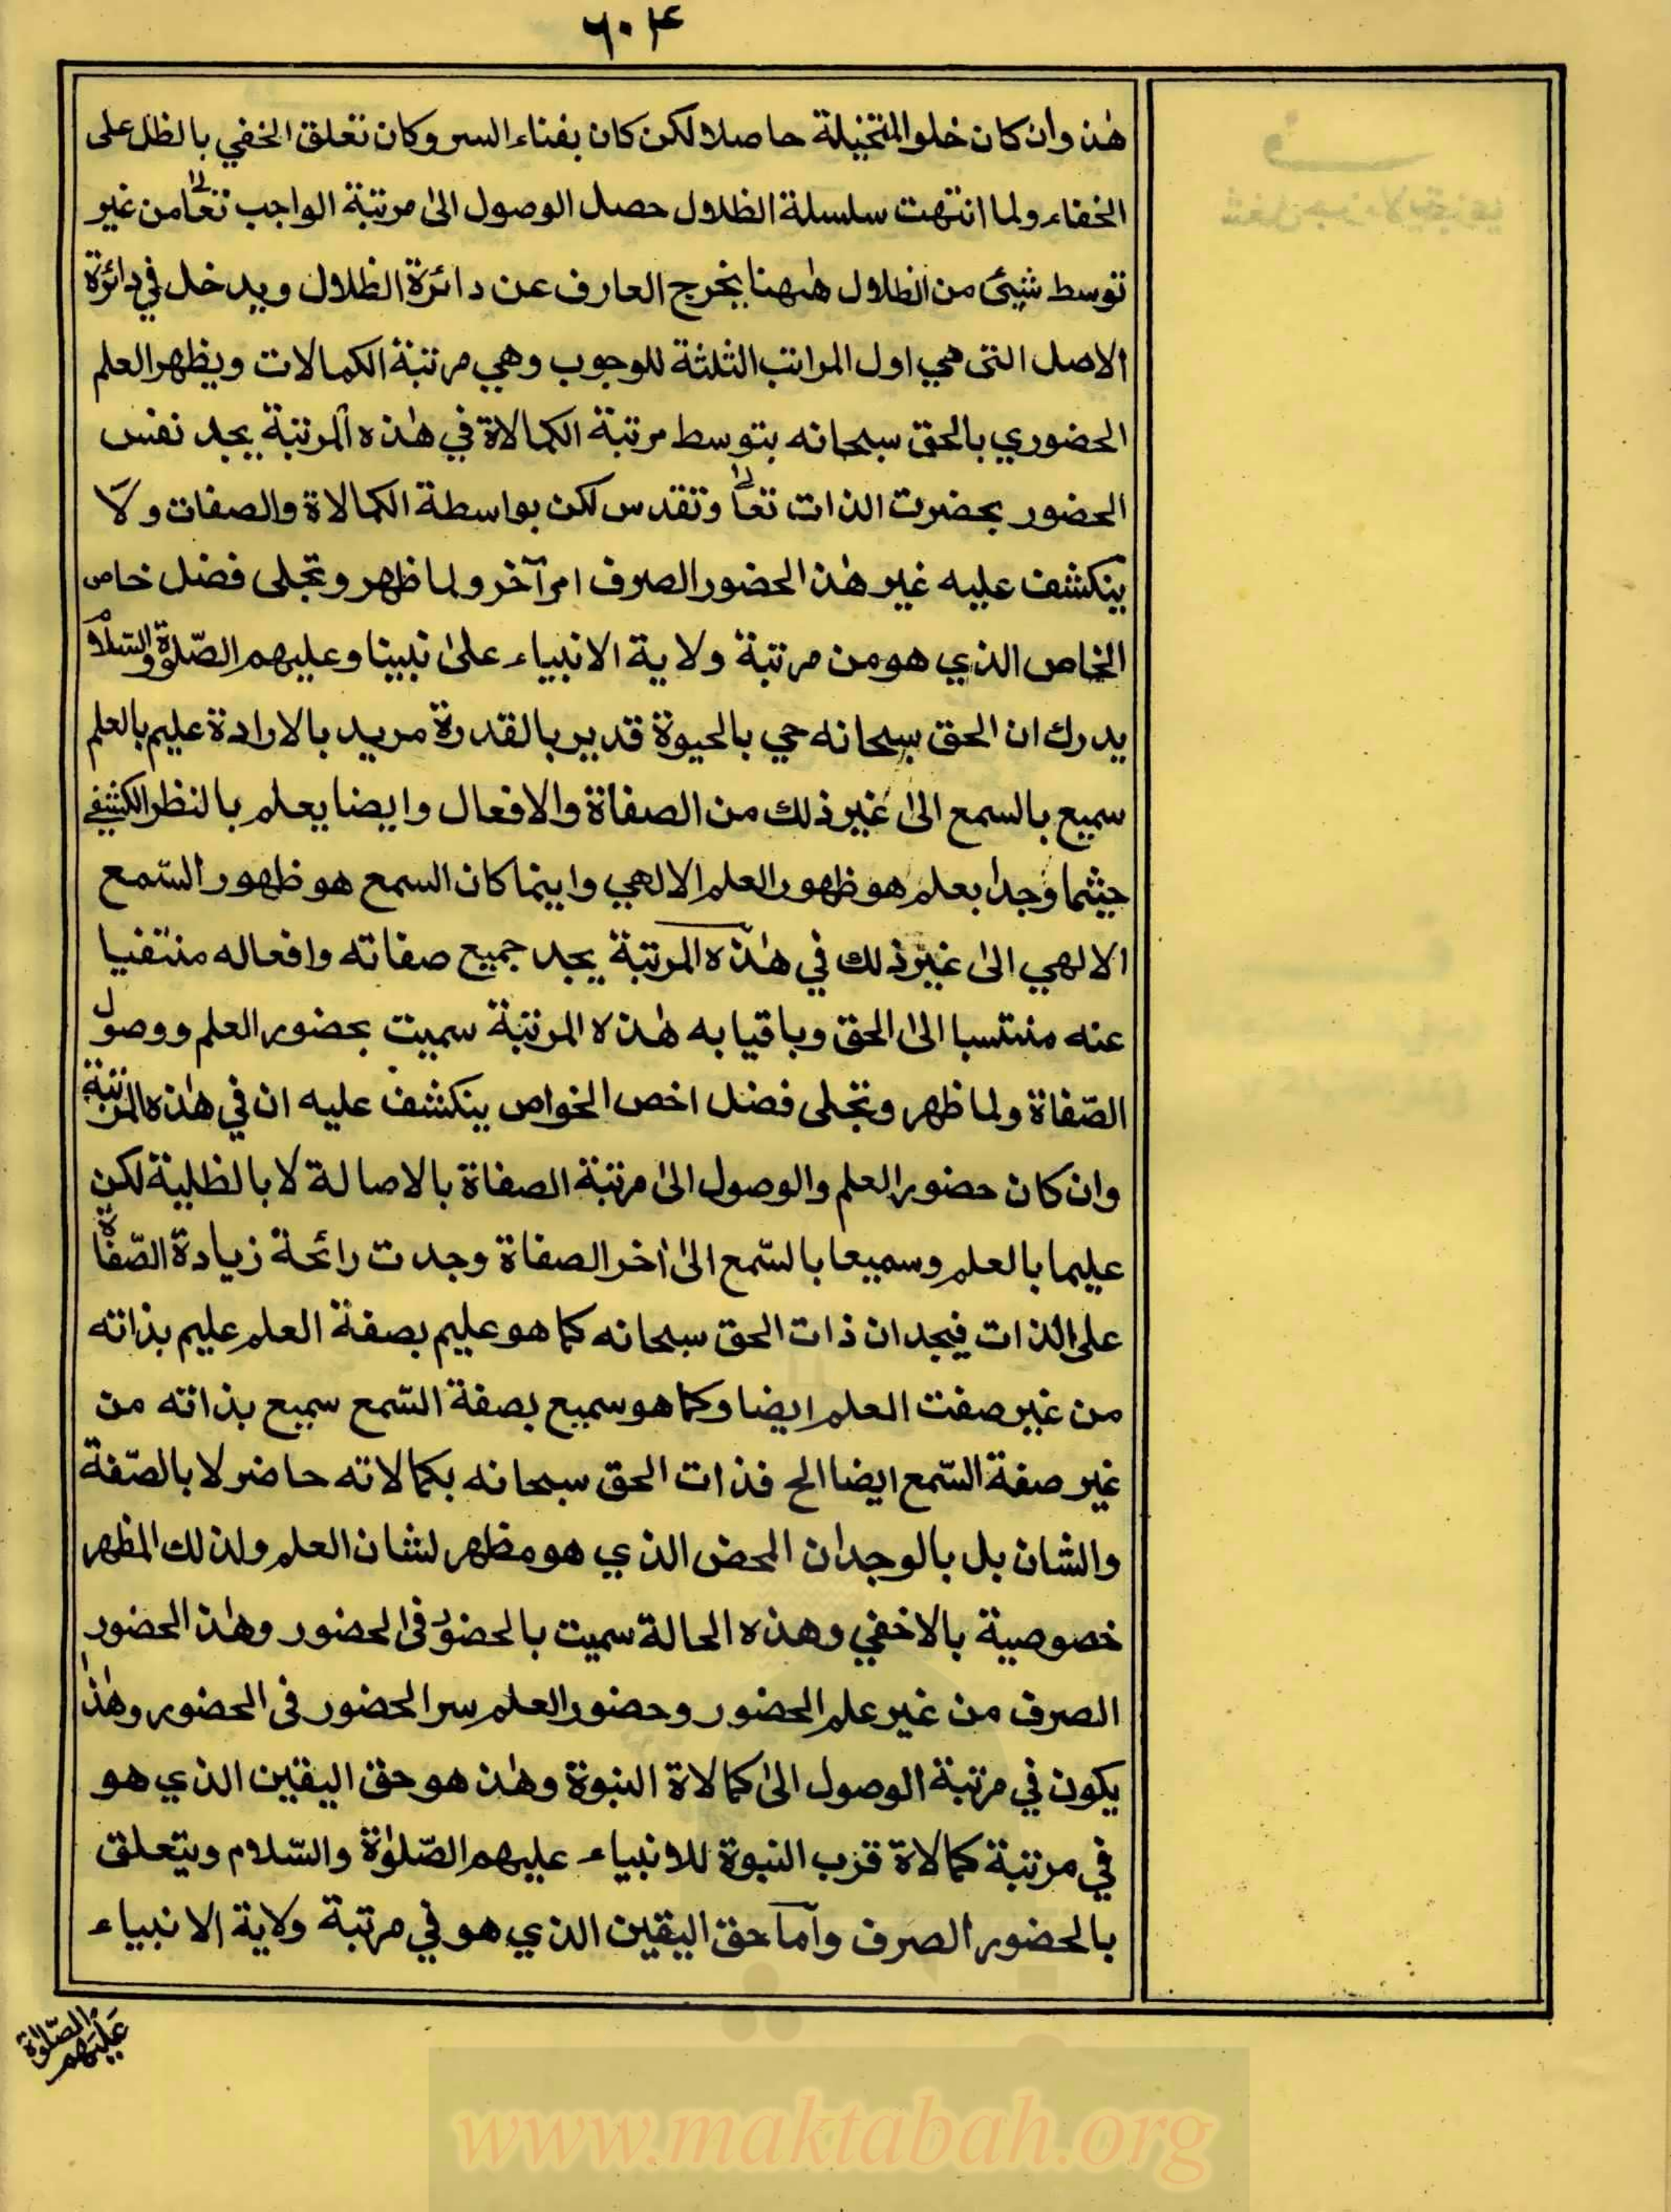 ٦٠٤
هٰذ وان كان خلو المتخيلة حاصلا لكن كان بفناء السر وكان تعلق الخفي بالظل على
الخفاء ولما انتهت سلسلة الظلال حصل الوصول الىٰ مرتبة الواجب تعالى من غير
توسط شيئ من الظلال هٰهنا يخرج العارف عن دائرة الظلال ويدخل في دائرة
الاصل التي هي اول المراتب الثلثة للوجوب وهي مرتبة الكمالات ويظهر العلم
الحضوري بالحق سبحانه بتوسط مرتبة الكمالاة في هٰذه المرتبة يجد نفس
الحضور بحضرت الذات تعالى وتقدس لكن بواسطة الكمالاة والصفات ولا
ينكشف عليه غير هٰذ الحضور الصرف امر آخر ولما ظهر وتجلى فضل خاص
الخاص الذي هو من مرتبة ولاية الانبياء علىٰ نبينا وعليهم الصّلوة والسّلام
يدرك ان الحق سبحانه حي بالحيوة قدير بالقدرة مريد بالارادة عليم بالعلم
سميع بالسمع الىٰ غير ذلك من الصفاة والافعال وايضا يعلم بالنظر الكشفي
حيثما وجد بعلم هو ظهور العلم الالهي واينما كان السمع هو ظهور السّمع
الالهي الىٰ غير ذلك في هٰذه المرتبة يجد جميع صفاته وافعاله منتفيا
عنه منتسبا الىٰ الحق وباقيا به هٰذه المرتبة سميت بحضور العلم ووصول
الصّفاة ولما ظهر وتجلى فضل اخص الخواص ينكشف عليه ان في هٰذه المرتبة
وان كان حضور العلم والوصول الىٰ مرتبة الصفاة بالاصالة لا بالظلية لكن
عليما بالعلم وسميعا بالسّمع الىٰ اٰخر الصفاة وجدت رائحة زيادة الصّفاة
على الذات فيجد ان ذات الحق سبحانه كما هو عليم بصفة العلم عليم بذاته
من غير صفت العلم ايضا وكما هو سميع بصفة السّمع سميع بذاته من
غير صفة السّمع ايضا الخ فذات الحق سبحانه بكمالاته حاضر لا بالصّفة
والشان بل بالوجدان المحض الذي هو مظهر لشان العلم ولذلك المظهر
خصوصية بالاخفي وهذه الحالة سميت بالحضور فى الحضور وهٰذ الحضور
الصرف من غير علم الحضور وحضور العلم سر الحضور فى الحضور وهٰذا
يكون في مرتبة الوصول الىٰ كمالاة النبوة وهٰذ هو حق اليقين الذي هو
في مرتبة كمالاة قرب النبوة للانبياء عليهم الصّلوٰة والسّلام ويتعلق
بالحضور الصرف وآما حق اليقين الذي هو في مرتبة ولاية الانبياء
عَلَيهم الصّلوٰة
www.maktabah.org